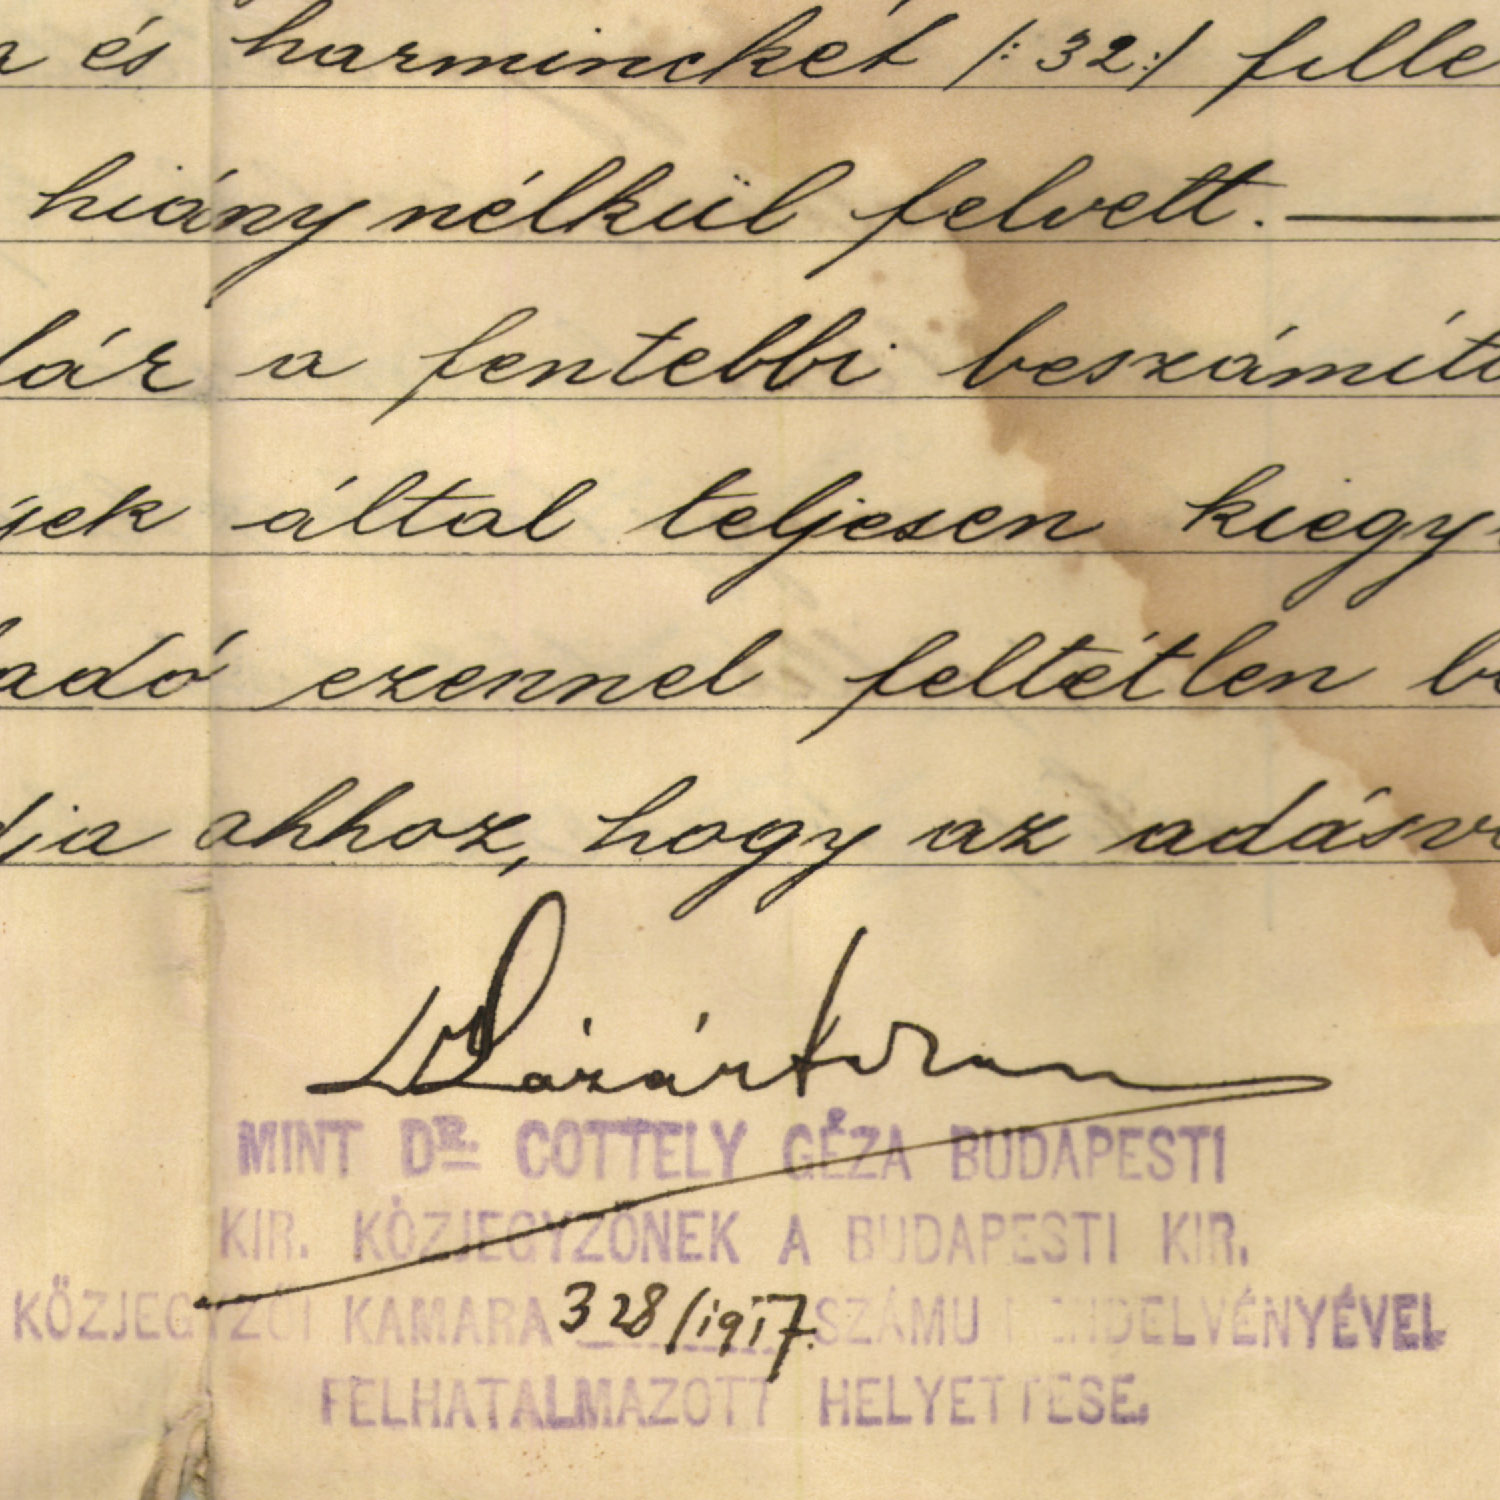 a és harminckét /: 32 :/ fille
hiány nélkül felvett. —
lár a fentebbi beszámít
jek által teljesen kiegy
adó ezennel feltétlen be
dja ahhoz, hogy az adásv
Lázár
MINT DR. COTTELY GÉZA BUDAPESTI
KIR. KÖZJEGYZŐNEK A BUDAPESTI KIR.
KÖZJEGYZŐI KAMARA 328/1917. SZÁMU RENDELVÉNYÉVEL
FELHATALMAZOTT HELYETTESE.